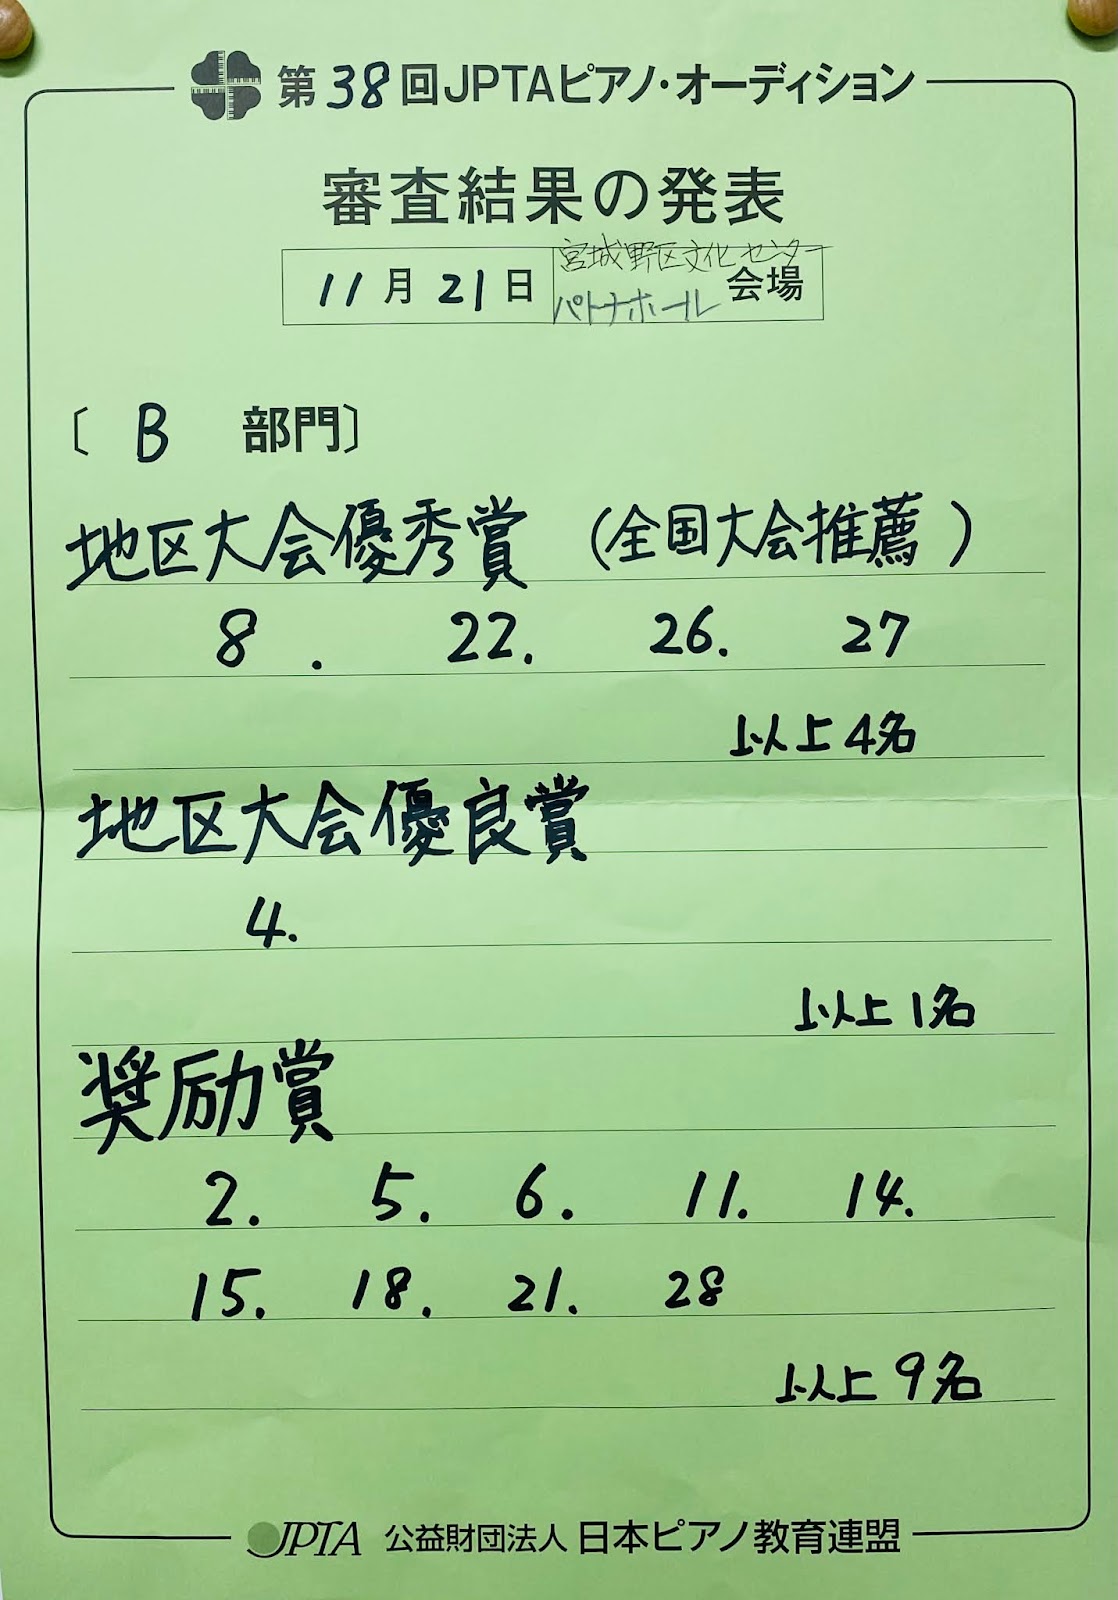 第38回JPTAピアノ・オーディション
審査結果の発表
宮城野区文化センター
11月21日 パトナホール 会場
〔 B 部門〕
地区大会優秀賞 (全国大会推薦)
8. 22. 26. 27
以上4名
地区大会優良賞
4.
以上1名
奨励賞
2. 5. 6. 11. 14.
15. 18. 21. 28
以上9名
JPTA 公益財団法人 日本ピアノ教育連盟